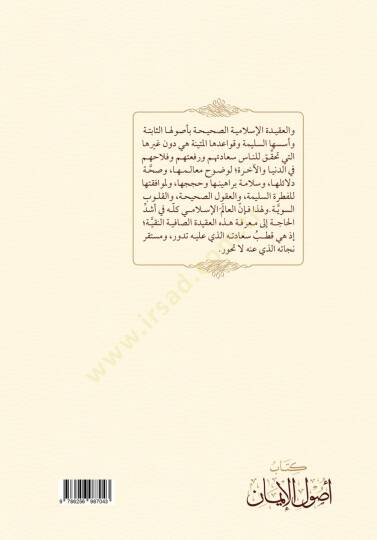 والعقيدة الإسلامية الصحيحة بأصولها الثابتة
وأسسها السليمة وقواعدها المتينة هي دون غيرها
التي تحقّق للناس سعادتهم ورفعتهم وفلاحهم
في الدنيا والآخرة؛ لوضوح معالمها، وصحّة
دلائلها، وسلامة براهينها وحججها، ولموافقتها
للفطرة السليمة، والعقول الصحيحة، والقلوب
السويّة. ولهذا فإنّ العالم الإسلامي كلّه في أشدّ
الحاجة إلى معرفة هذه العقيدة الصافية النقيّة؛
إذ هي قطبُ سعادته الذي عليه تدور، ومستقر
نجاته الذي عنه لا تحور.
www.irsad.
كِتَابُ
أصول الإيمان